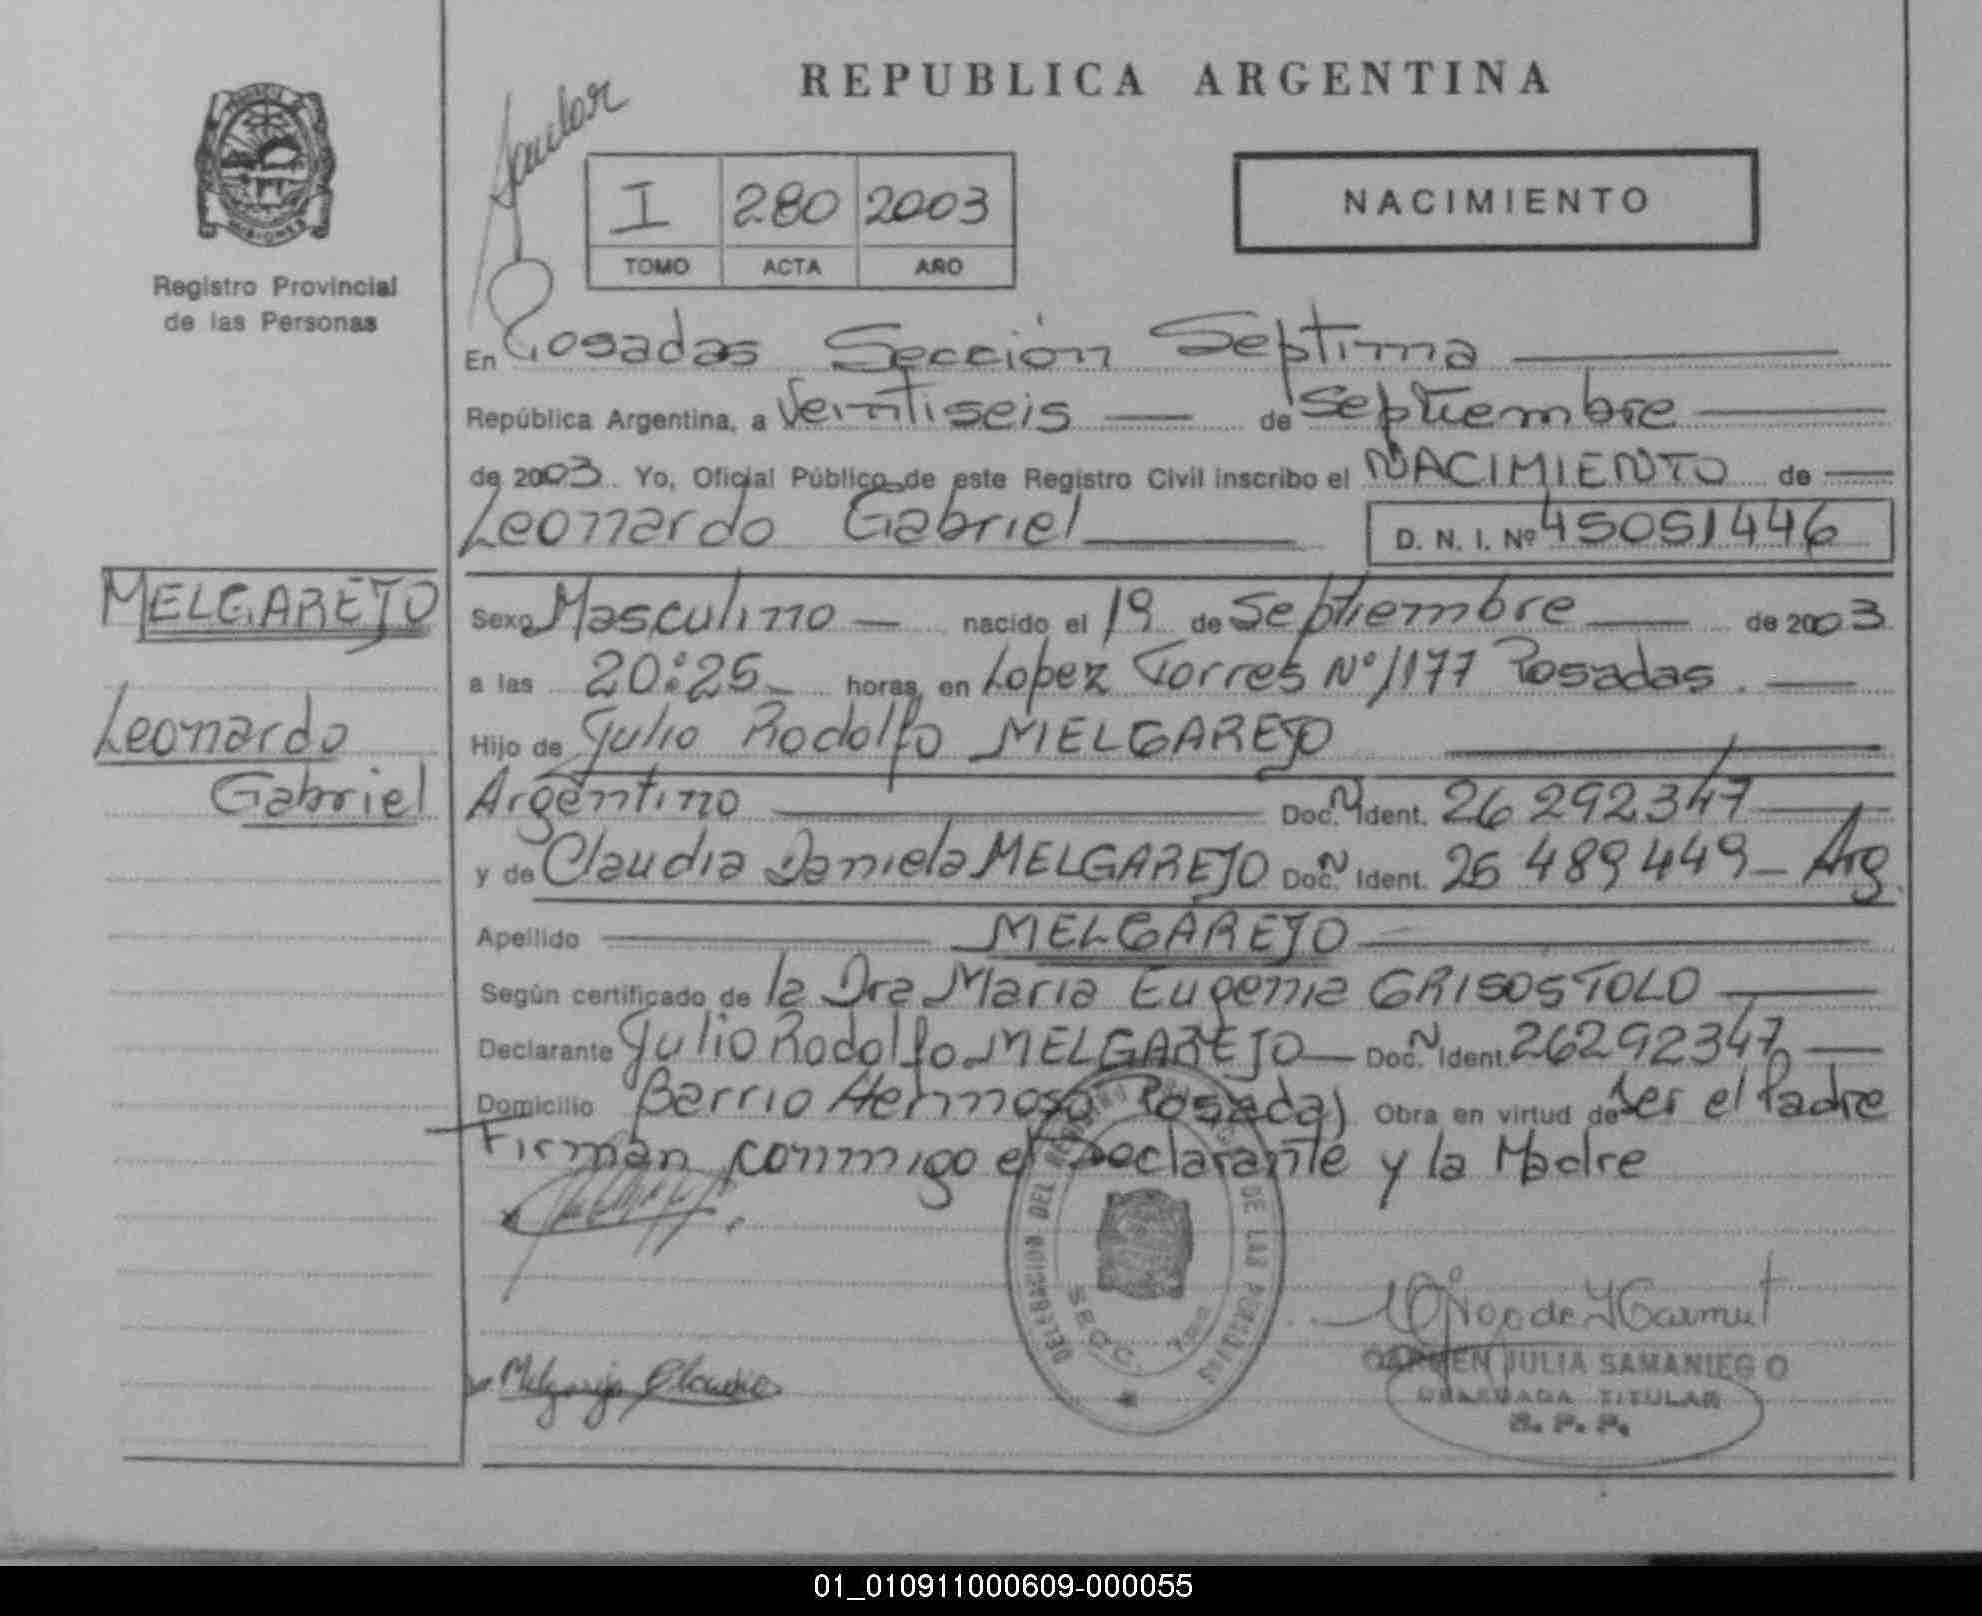 REPUBLICA ARGENTINA
MISIONES
Registro Provincial
de las Personas
I 280 2003
TOMO ACTA AÑO
NACIMIENTO
En Posadas Sección Septima
República Argentina, a Veintiseis de Septiembre
de 2003. Yo, Oficial Público de este Registro Civil inscribo el NACIMIENTO de
Leonardo Gabriel D. N. I. Nº 45051446
MELGAREJO
Leonardo
Gabriel
Sexo Masculino nacido el 19 de Septiembre de 2003
a las 20:25 horas, en Lopez Torres Nº 1177 Posadas.
Hijo de Julio Rodolfo MELGAREJO
Argentino Doc. N Ident. 26 292347
y de Claudia Daniela MELGAREJO Doc. N Ident. 26 489449 - Arg.
Apellido MELGAREJO
Según certificado de la Dra Maria Eugenia GRISOSTOLO
Declarante Julio Rodolfo MELGAREJO Doc. N Ident. 26292347
Domicilio Barrio Hermoso Posadas Obra en virtud de Ser el Padre
Firman conmigo el Declarante y la Madre
DELEGACION DEL REGISTRO DE LAS PERSONAS
SECC. 7
Melgarejo Claudia
CARMEN JULIA SAMANIEGO
DELEGADA TITULAR
R. P. P.
01_010911000609-000055